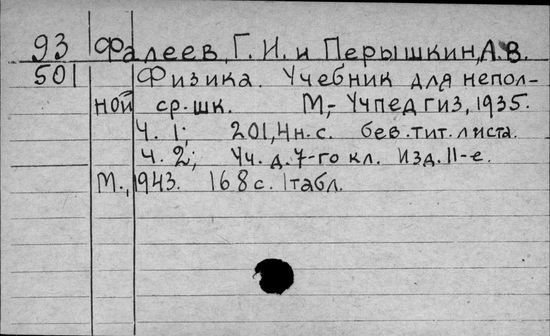 93 Фалеев, Г. И. и Перышкин, А. В.
501 Физика. Учебник для непол-
ной ср. шк. М,- Учпедгиз, 1935.
Ч. 1; 201, 4 н. с. без. тит. листа.
Ч. 2; Уч. д. 7-го кл. Изд. 11-е.
М., 1943. 168 с. 1 табл.